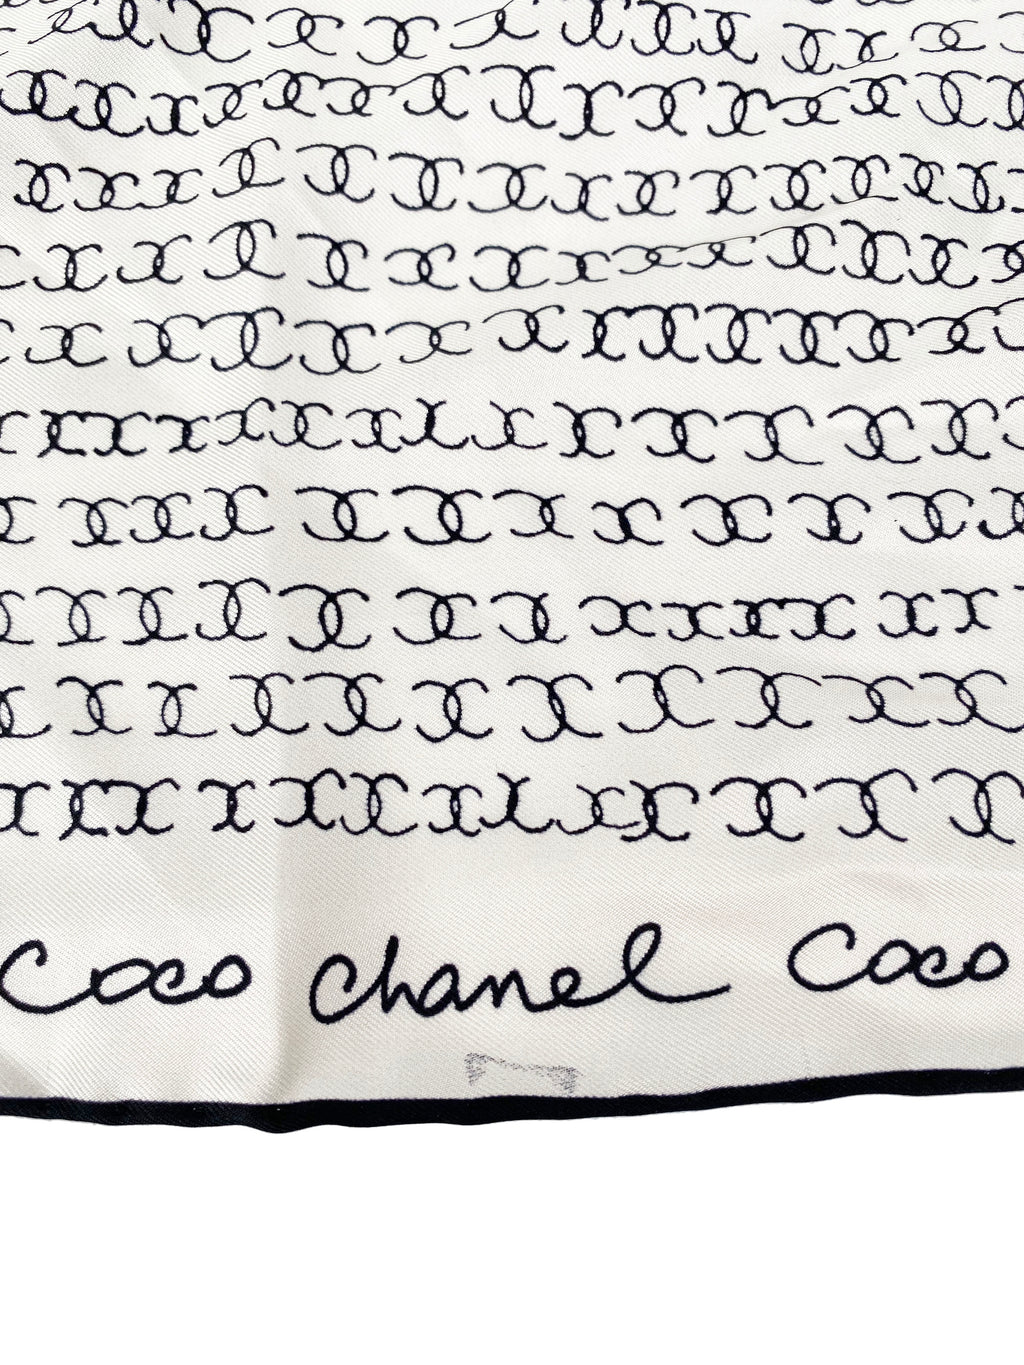 Coco Chanel Coco